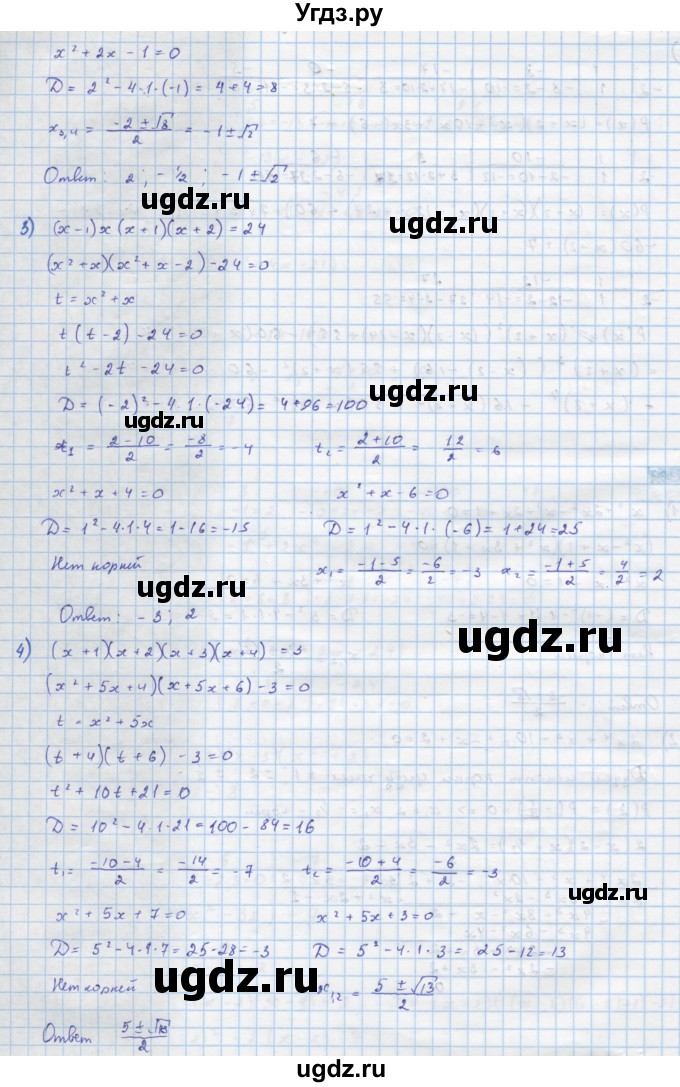 Угдз.ру
x² + 2x - 1 = 0
D = 2² - 4·1·(-1) = 4 + 4 = 8
x₃,₄ = (-2 ± √8)/2 = -1 ± √2
Ответ: 2; -1/2; -1 ± √2
ugdz.ru ugdz.ru
3) (x-1)x(x+1)(x+2) = 24
(x² + x)(x² + x - 2) - 24 = 0
t = x² + x
t(t-2) - 24 = 0
t² - 2t - 24 = 0
ugdz.ru
D = (-2)² - 4·1·(-24) = 4 + 96 = 100
ugdz.ru
t₁ = (2-10)/2 = -8/2 = -4 t₂ = (2+10)/2 = 12/2 = 6
x² + x + 4 = 0 x² + x - 6 = 0
D = 1² - 4·1·4 = 1 - 16 = -15 D = 1² - 4·1·(-6) = 1 + 24 = 25
Нет корней x₁ = (-1-5)/2 = -6/2 = -3 x₂ = (-1+5)/2 = 4/2 = 2
ugdz.ru
Ответ: -3; 2
ugdz.ru
4) (x+1)(x+2)(x+3)(x+4) = 3
(x² + 5x + 4)(x + 5x + 6) - 3 = 0
t = x² + 5x
(t+4)(t+6) - 3 = 0
ugdz.ru
t² + 10t + 21 = 0
D = 10² - 4·1·21 = 100 - 84 = 16
t₁ = (-10-4)/2 = -14/2 = -7 t₂ = (-10+4)/2 = -6/2 = -3
ugdz.ru
x² + 5x + 7 = 0 x² + 5x + 3 = 0
D = 5² - 4·1·7 = 25 - 28 = -3 D = 5² - 4·1·3 = 25 - 12 = 13
Нет корней x₁,₂ = (5 ± √13)/2
ugdz.ru ugdz.ru
Ответ (5 ± √13)/2
ugdz.ru